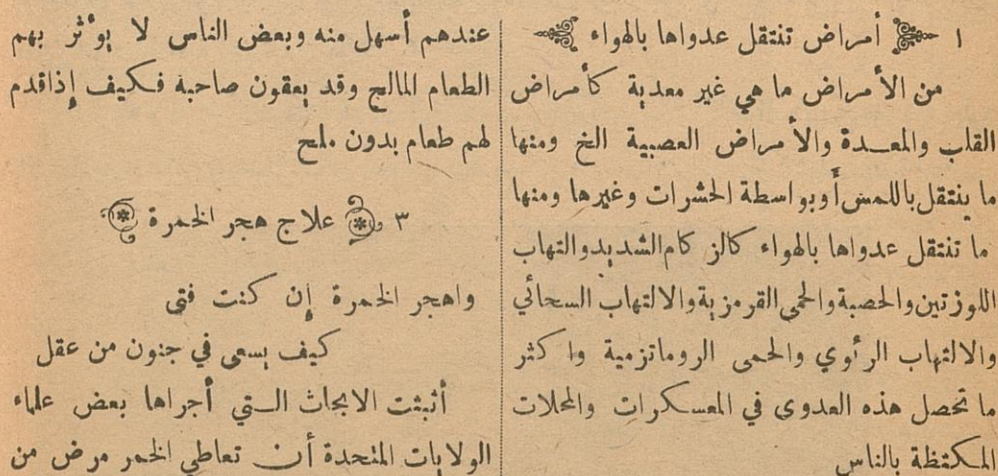 ١ أمراض تنتقل عدواها بالهواء
من الأمراض ما هي غير معدية كأمراض
القلب والمعدة والأمراض العصبية الخ ومنها
ما ينتقل باللمس أو بواسطة الحشرات وغيرها ومنها
ما تنتقل عدواها بالهواء كالزكام الشديد والتهاب
اللوزتين والحصبة والحمى القرمزية والالتهاب السحائي
والالتهاب الرئوي والحمى الروماتزمية واكثر
ما تحصل هذه العدوى في المعسكرات والمحلات
المكتظة بالناس
عندهم أسهل منه وبعض الناس لا يؤثر بهم
الطعام المالح وقد يعقون صاحبة فكيف إذا قدم
لهم طعام بدون ملح
٣ علاج هجر الخمرة
واهجر الخمرة إن كنت فتى
كيف يسعى في جنون من عقل
أثبتت الابحاث التي أجراها بعض علماء
الولايات المتحدة أن تعاطي الخمر مرض من